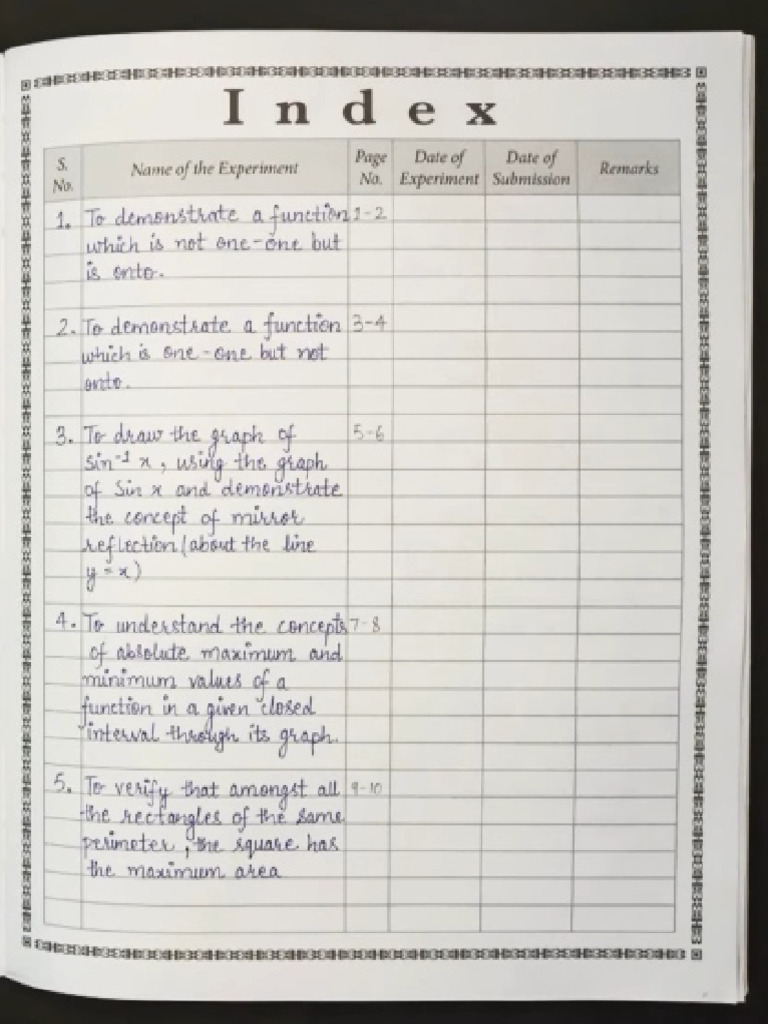 Index
S. No. Name of the Experiment Page No. Date of Experiment Date of Submission Remarks
1. To demonstrate a function 1-2
which is not one-one but
is onto.
2. To demonstrate a function 3-4
which is one-one but not
onto.
3. To draw the graph of 5-6
sin⁻¹ x, using the graph
of Sin x and demonstrate
the concept of mirror
reflection (about the line
y = x)
4. To understand the concepts 7-8
of absolute maximum and
minimum values of a
function in a given closed
interval through its graph.
5. To verify that amongst all 9-10
the rectangles of the same
perimeter, the square has
the maximum area